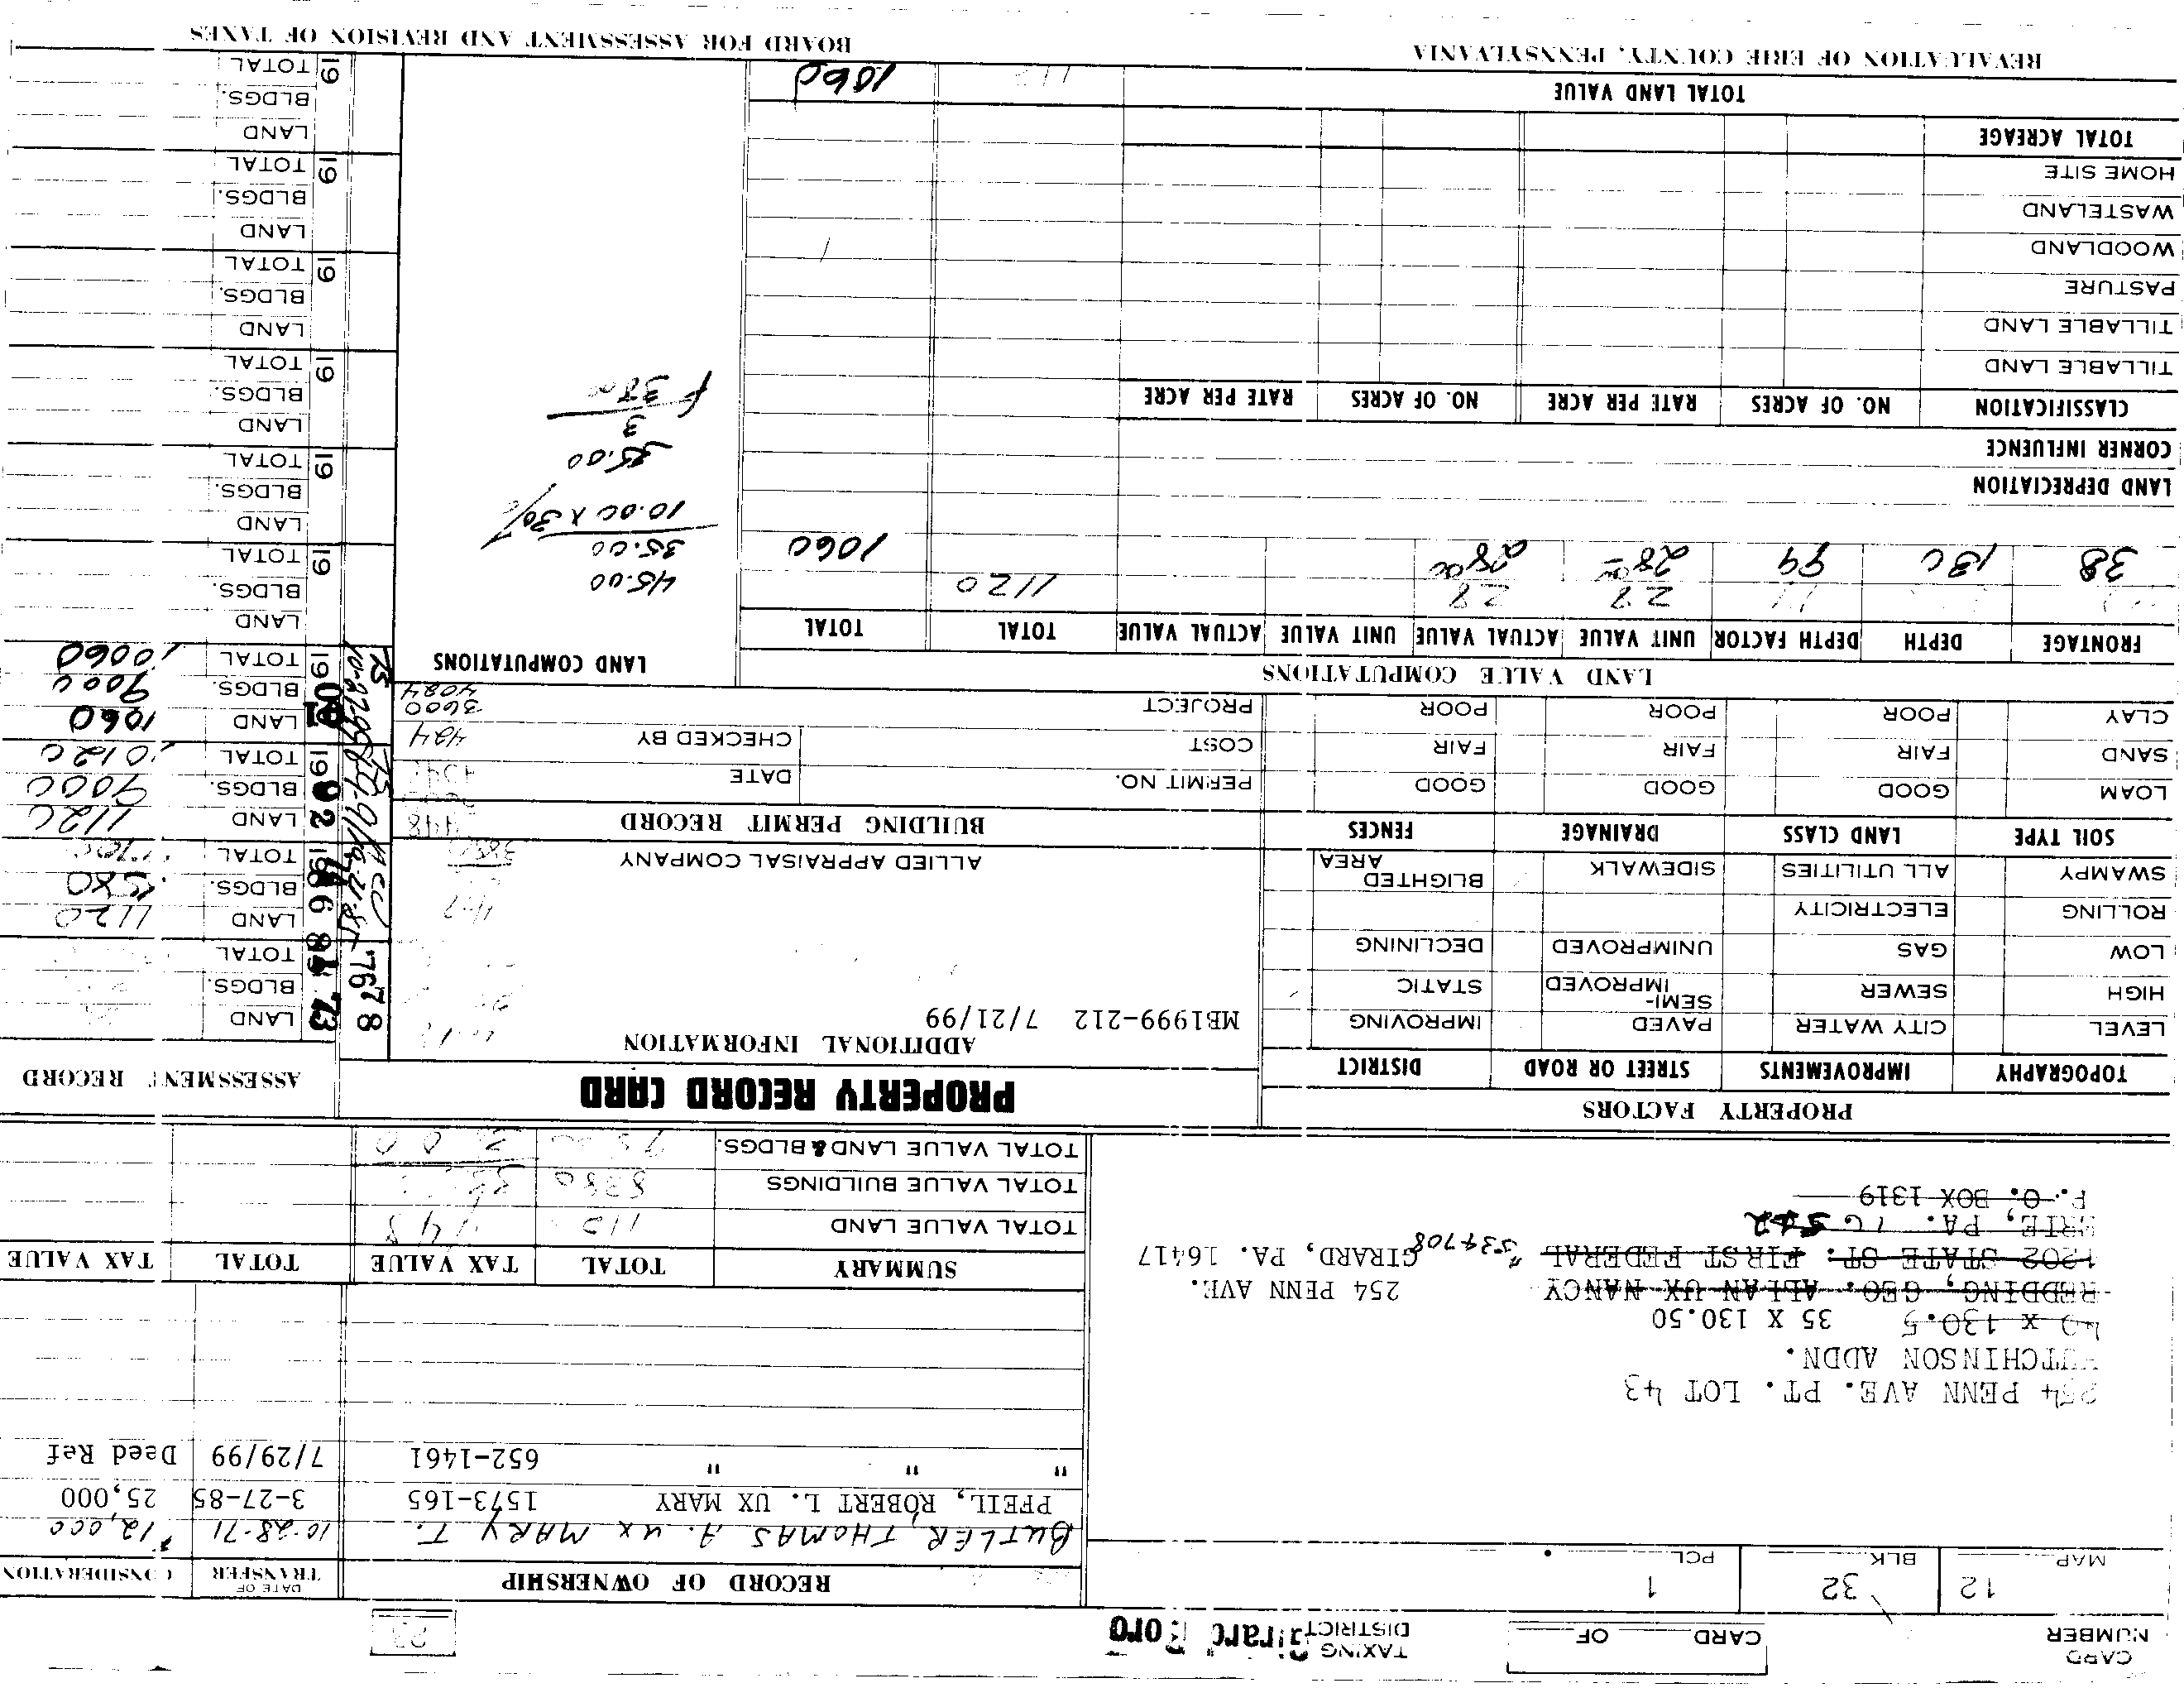 CARD NUMBER
CARD OF
TAXING DISTRICT Girard Boro
23
MAP 12 BLK 32 PCL 1
RECORD OF OWNERSHIP
DATE OF TRANSFER
CONSIDERATION
BUTLER, THOMAS A. ux MARY T. 10-28-71 $12,000
PFEIL, ROBERT L. UX MARY 1573-165 3-27-85 25,000
" " " 652-1461 7/29/99 Deed Ref
254 PENN AVE. PT. LOT 43
HUTCHINSON ADDN.
40 X 130.5 35 X 130.50
REDDING, GEO. ALLAN UX NANCY
254 PENN AVE.
1202 STATE ST. FIRST FEDERAL
GIRARD, PA. 16417
ERIE, PA.
P. O. BOX 1319
SUMMARY TOTAL TAX VALUE TOTAL TAX VALUE
TOTAL VALUE LAND
TOTAL VALUE BUILDINGS 8380
TOTAL VALUE LAND & BLDGS.
PROPERTY FACTORS
TOPOGRAPHY IMPROVEMENTS STREET OR ROAD DISTRICT
LEVEL CITY WATER PAVED IMPROVING
HIGH SEWER SEMI-IMPROVED STATIC
LOW GAS UNIMPROVED DECLINING
ROLLING ELECTRICITY
SWAMPY ALL UTILITIES SIDEWALK BLIGHTED AREA
SOIL TYPE LAND CLASS DRAINAGE FENCES
LOAM GOOD GOOD GOOD
SAND FAIR FAIR FAIR
CLAY POOR POOR POOR
PROPERTY RECORD CARD
ADDITIONAL INFORMATION
MB1999-212 7/21/99
ALLIED APPRAISAL COMPANY
BUILDING PERMIT RECORD
PERMIT NO. DATE
COST CHECKED BY
PROJECT
448
424
3600
4024
ASSESSMENT RECORD
LAND
BLDGS.
TOTAL
LAND 1120
BLDGS.
TOTAL
LAND 1120
BLDGS. 9000
TOTAL 10120
LAND 1060
BLDGS. 9000
TOTAL 10060
19 LAND
BLDGS.
TOTAL
19 LAND
BLDGS.
TOTAL
19 LAND
BLDGS.
TOTAL
19 LAND
BLDGS.
TOTAL
19 LAND
BLDGS.
TOTAL
19 LAND
BLDGS.
TOTAL
LAND VALUE COMPUTATIONS
LAND COMPUTATIONS
FRONTAGE DEPTH DEPTH FACTOR UNIT VALUE ACTUAL VALUE UNIT VALUE ACTUAL VALUE TOTAL TOTAL
28 28 1120
38 130 99 28 28 1060
45.00
35.00
10.00 X 30%
35.00
3
F 38.00
LAND DEPRECIATION
CORNER INFLUENCE
CLASSIFICATION NO. OF ACRES RATE PER ACRE NO. OF ACRES RATE PER ACRE
TILLABLE LAND
TILLABLE LAND
PASTURE
WOODLAND
WASTELAND
HOME SITE
TOTAL ACREAGE
TOTAL LAND VALUE 1060
REVALUATION OF ERIE COUNTY, PENNSYLVANIA
BOARD FOR ASSESSMENT AND REVISION OF TAXES